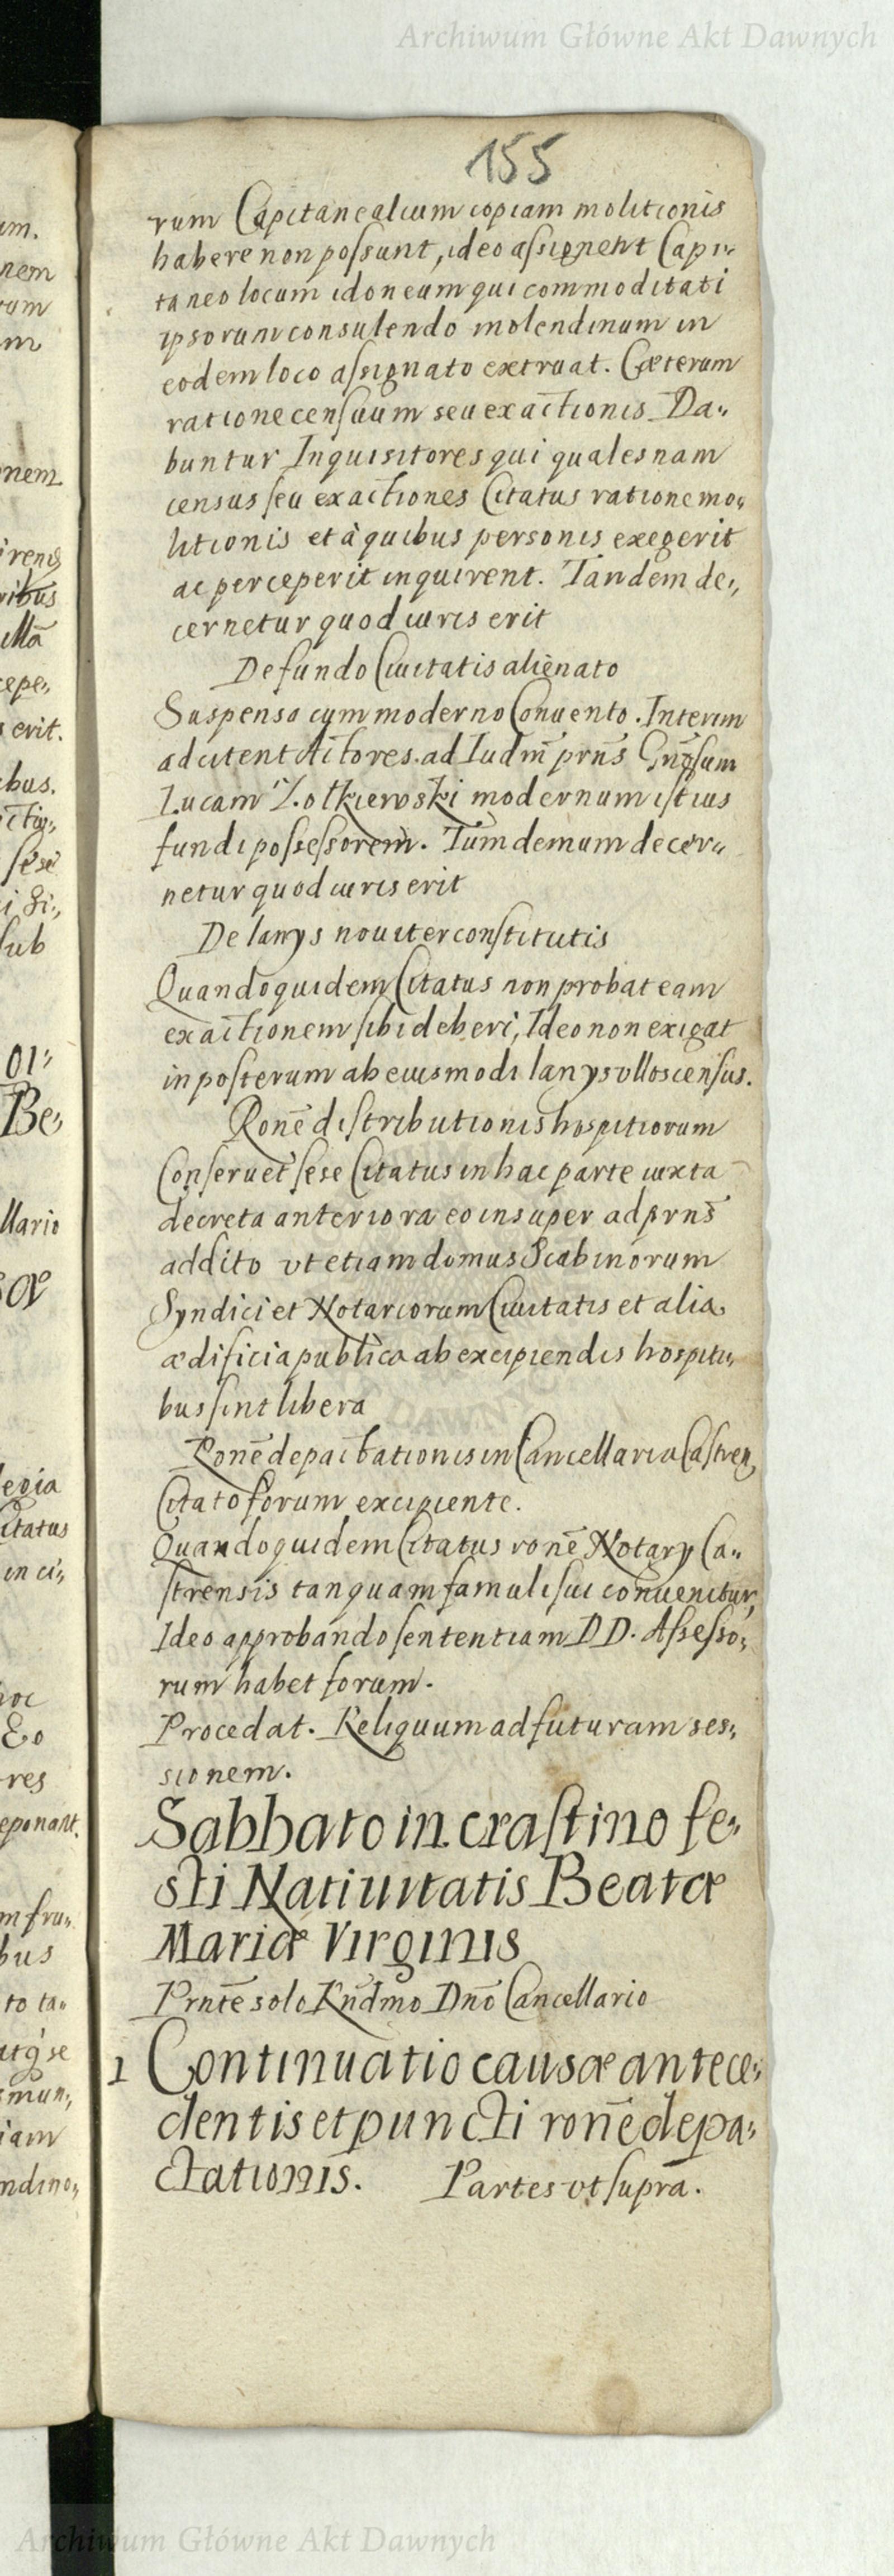 Archiwum Główne Akt Dawnych
155
rum Capitanealium copiam molitionis
habere non possunt, ideo assignent Capi„
taneo locum idoneum qui commoditati
ipsorum consulendo molendinum in
eodem loco assignato extruat. Cæterum
ratione censuum seu exactionis Da„
buntur Inquisitores qui qualesnam
census seu exactiones Citatus ratione mo„
litionis et à quibus personis exegerit
ac perceperit inquirent. Tandem de„
cernetur quod iuris erit
De fundo Ciuitatis alienato
Suspensa cum moderno Conuento. Interim
adcitent Actores ad Iudm̄ prn̄s Gn̄osum
Lucam Zołkiewski modernum istius
fundi possessorem. Tum demum decer„
netur quod iuris erit
De lanys nouiter constitutis
Quandoquidem Citatus non probat eam
exactionem sibi deberi, Ideo non exigat
in posterum ab eiusmodi lanys vllos census.
Ronē distributionis hospitiorum
Conseruet sese Citatus in hac parte iuxta
decreta anteriora eo insuper ad prn̄s
addito vt etiam domus Scabinorum
Syndici et Notariorum Ciuitatis et alia
ædificia publica ab excipiendis hospiti„
bus sint libera
Ronē depactationis in Cancellaria Castren
Citato forum excipiente.
Quandoquidem Citatus ronē Notary Ca„
strensis tanquam famuli sui conuenitur,
Ideo approbando sententiam DD. Assesso„
rum habet forum.
Procedat. Reliquum ad futuram ses„
sionem.
Sabbato in crastino fe„
sti Natiuitatis Beatæ
Mariæ Virginis
Prn̄te solo Rn̄dmo Dn̄o Cancellario
1 Continuatio causæ antece„
dentis et puncti ronē depa„
ctationis. Partes vt supra.
Archiwum Główne Akt Dawnych